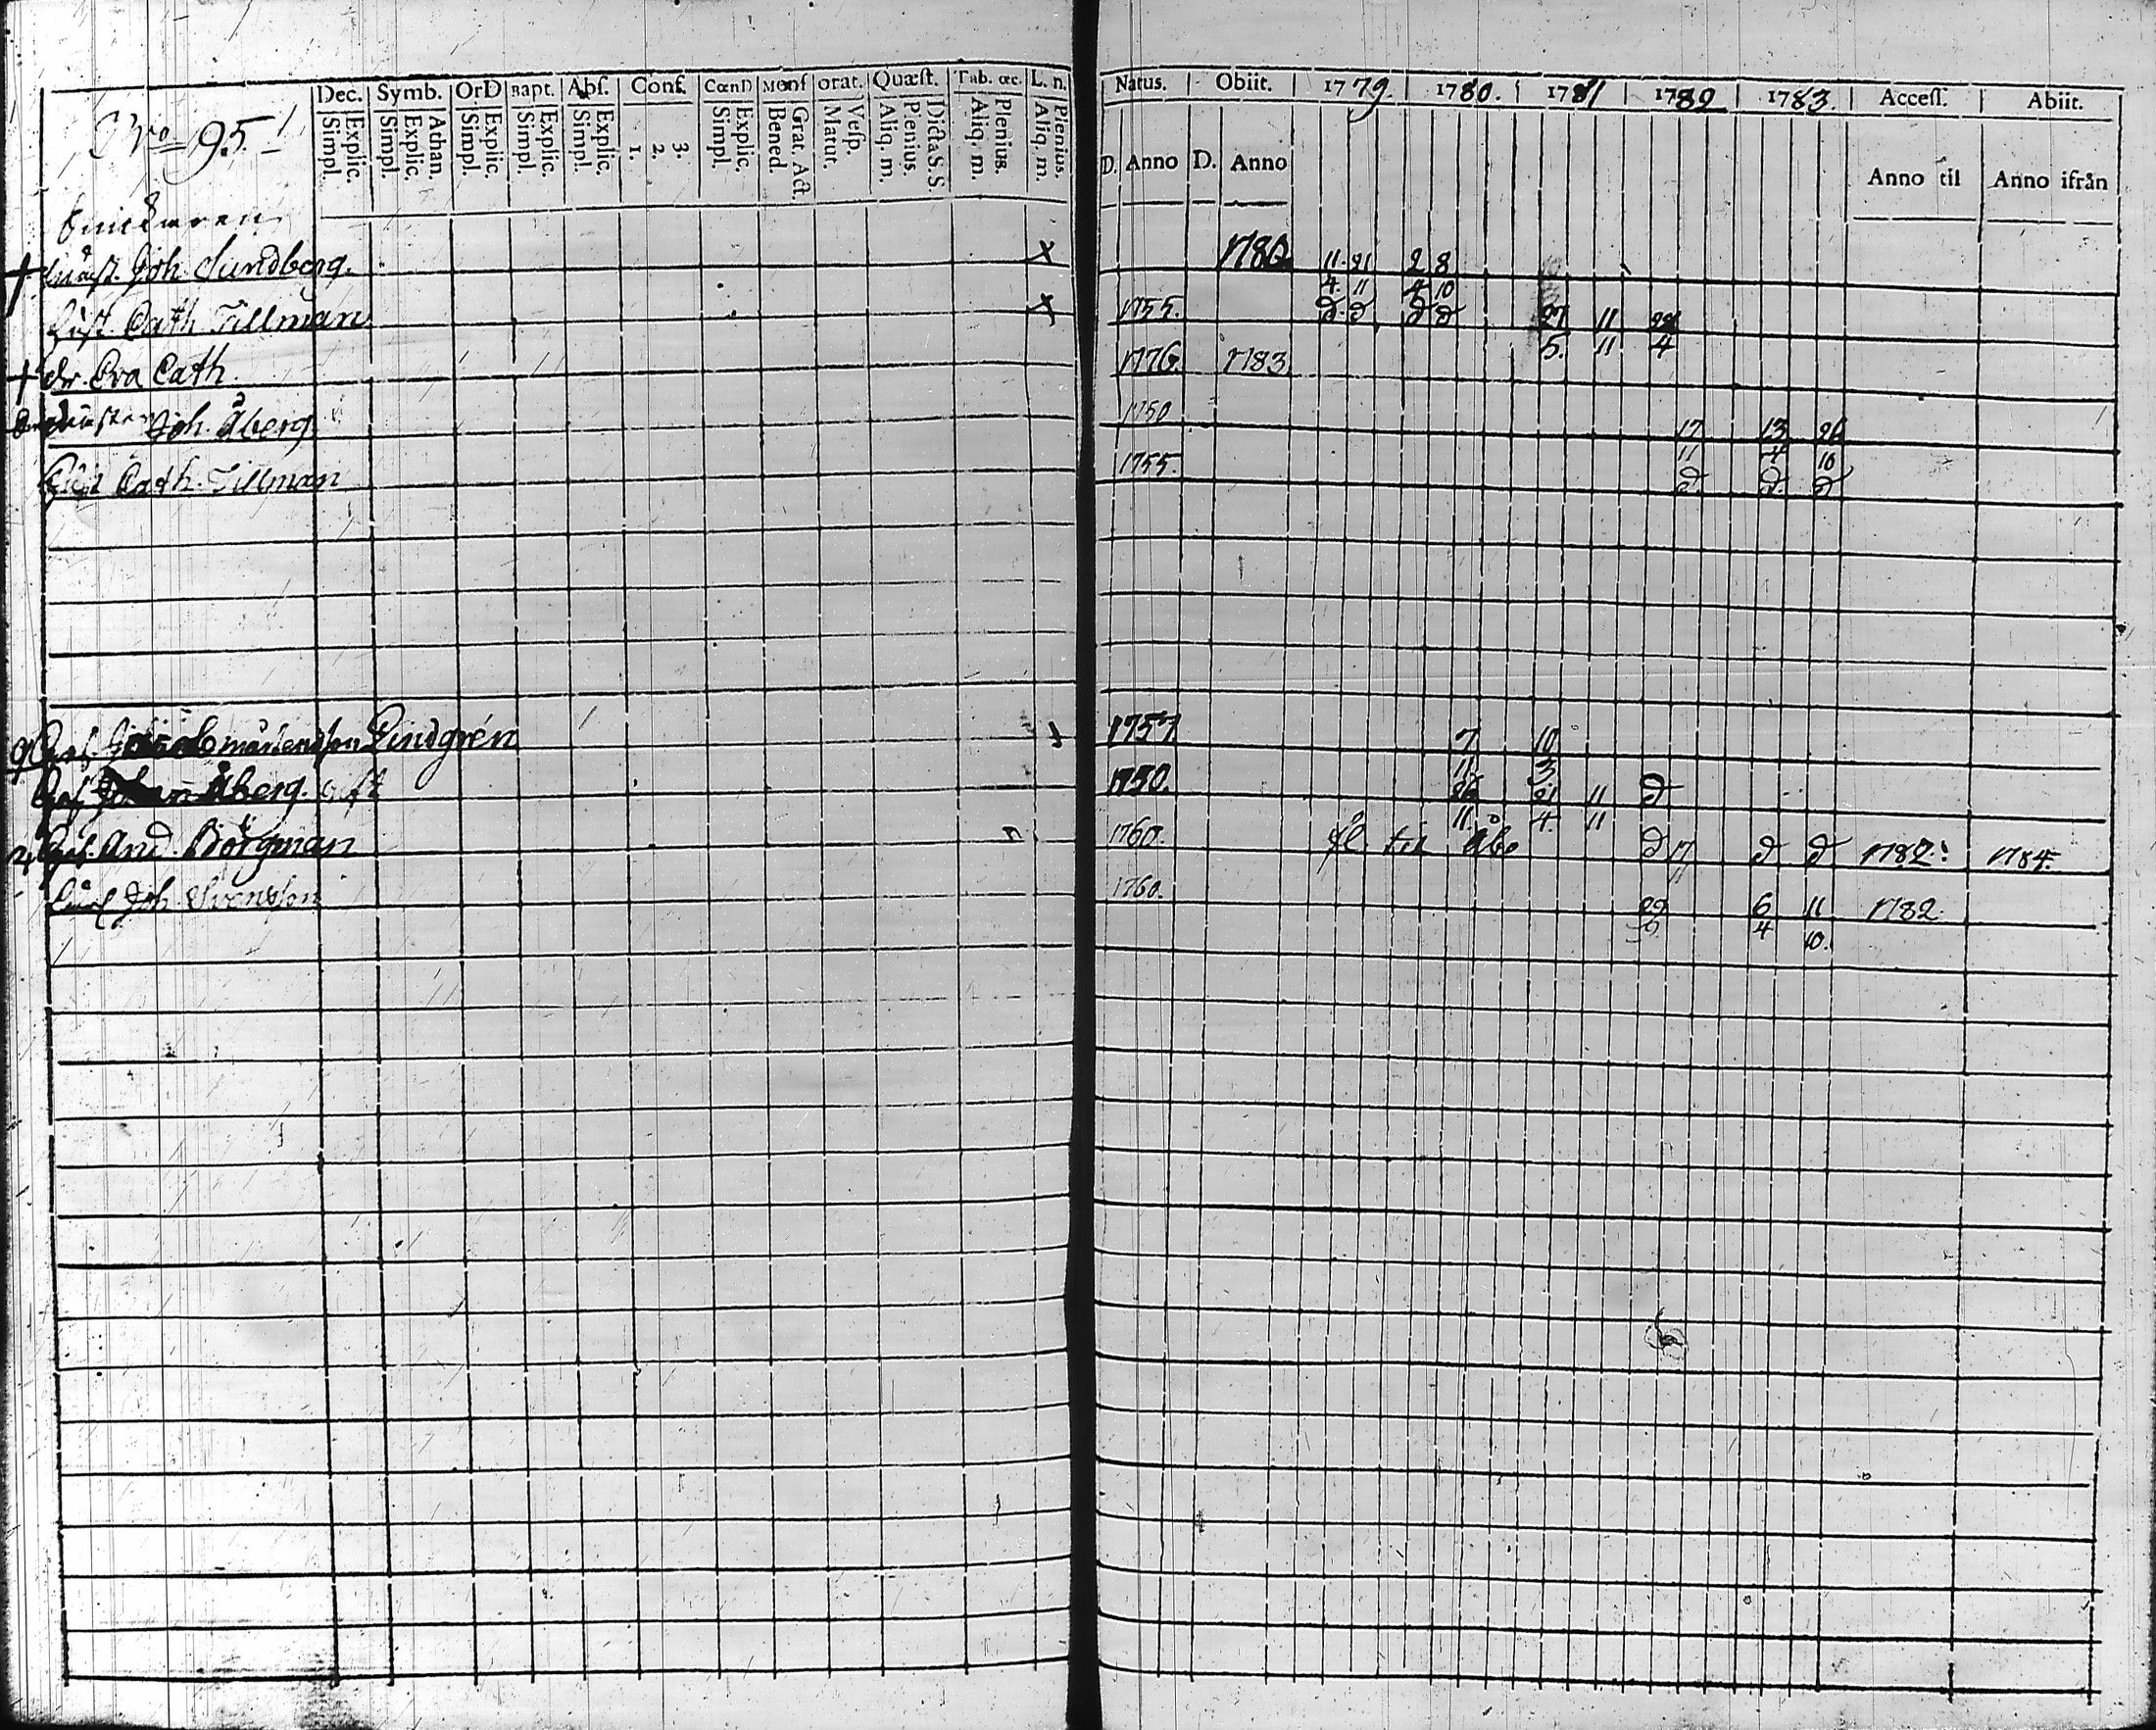 Dec. Symb. OrD Bapt. Abs. Conf. CœnD Mens orat. Quæst. Tab. œc. L. n. Natus. Obiit. 1779. 1780. 1781 1782 1783. Access. Abiit.
Simpl. Explic. Simpl. Explic. Athan. Simpl. Explic. Simpl. Explic. Simpl. Explic. 1. 2. 3. Simpl. Explic. Bened. Grat. Act. Matut. Vesp. Aliq. m. Plenius. Dicta S. S. Aliq. m. Plenius. Aliq. m. Plenius. D. Anno D. Anno Anno til Anno ifrån
N:ro 95
† Joh. Sundberg. 11 21 2 8
4. 11 4 10
Cath Tillman 1755. d d d d 27 11 22
5. 11 4
† dr. Eva Cath. 1776. 1783
Joh. Åberg 1750 17 13 26
11 4 10
Cath. Tillman 1755. d. d. d
Lindgrén 1757 7 10
11 3
Åberg. 1750. 26 21 11 d
11. 4. 11
And. Börgman 1760. til Åbo d 17 d d 1782. 1784.
11
Joh Svensson 1760. 29 6 11 1782.
4 10.